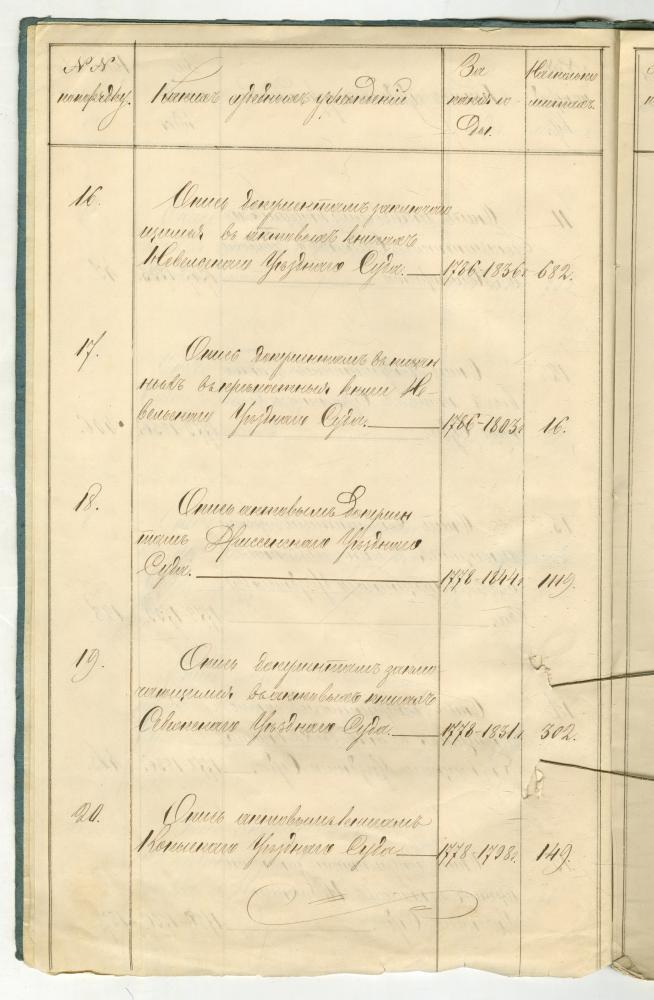 № №
попорядку.
Какихъ судебныхъ учрежденій
За
какіе го-
ды.
На сколько
листахъ.
16.
Опись документамъ заключаю
щимся въ актовыхъ книгахъ
Невельскаго Уѣзднаго Суда. 1786-1836г. 682.
17.
Опись документамъ вписан
нымъ въ крѣпостныя книги Не-
вельскаго Уѣзднаго Суда. 1786-1803г. 16.
18.
Опись актовымъ докумен
тамъ Дриссенскаго Уѣзднаго
Суда. 1778-1844г. 1119.
19.
Опись документамъ заклю-
чающимся въ актовыхъ книгахъ
Сѣнскаго Уѣзднаго Суда. 1778-1831г. 302.
20.
Опись актовымъ книгамъ
Копыскаго Уѣзднаго Суда 1778-1798г. 149.